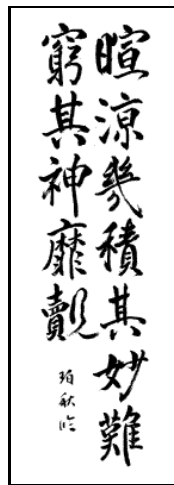 暄涼幾積其妙難
窮其神靡覿
珀秋临